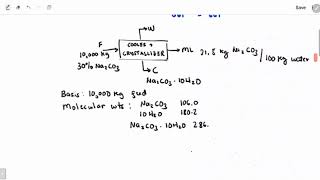 W
F
10,000 Kg
30% Na2CO3
COOLER +
CRYSTALLIZER
ML 21.5 kg Na2CO3 / 100 Kg water
C
Na2CO3 · 10H2O
Basis: 10,000 Kg feed
Molecular wts: Na2CO3 106.0
10H2O 180.2
Na2CO3 · 10H2O 286.